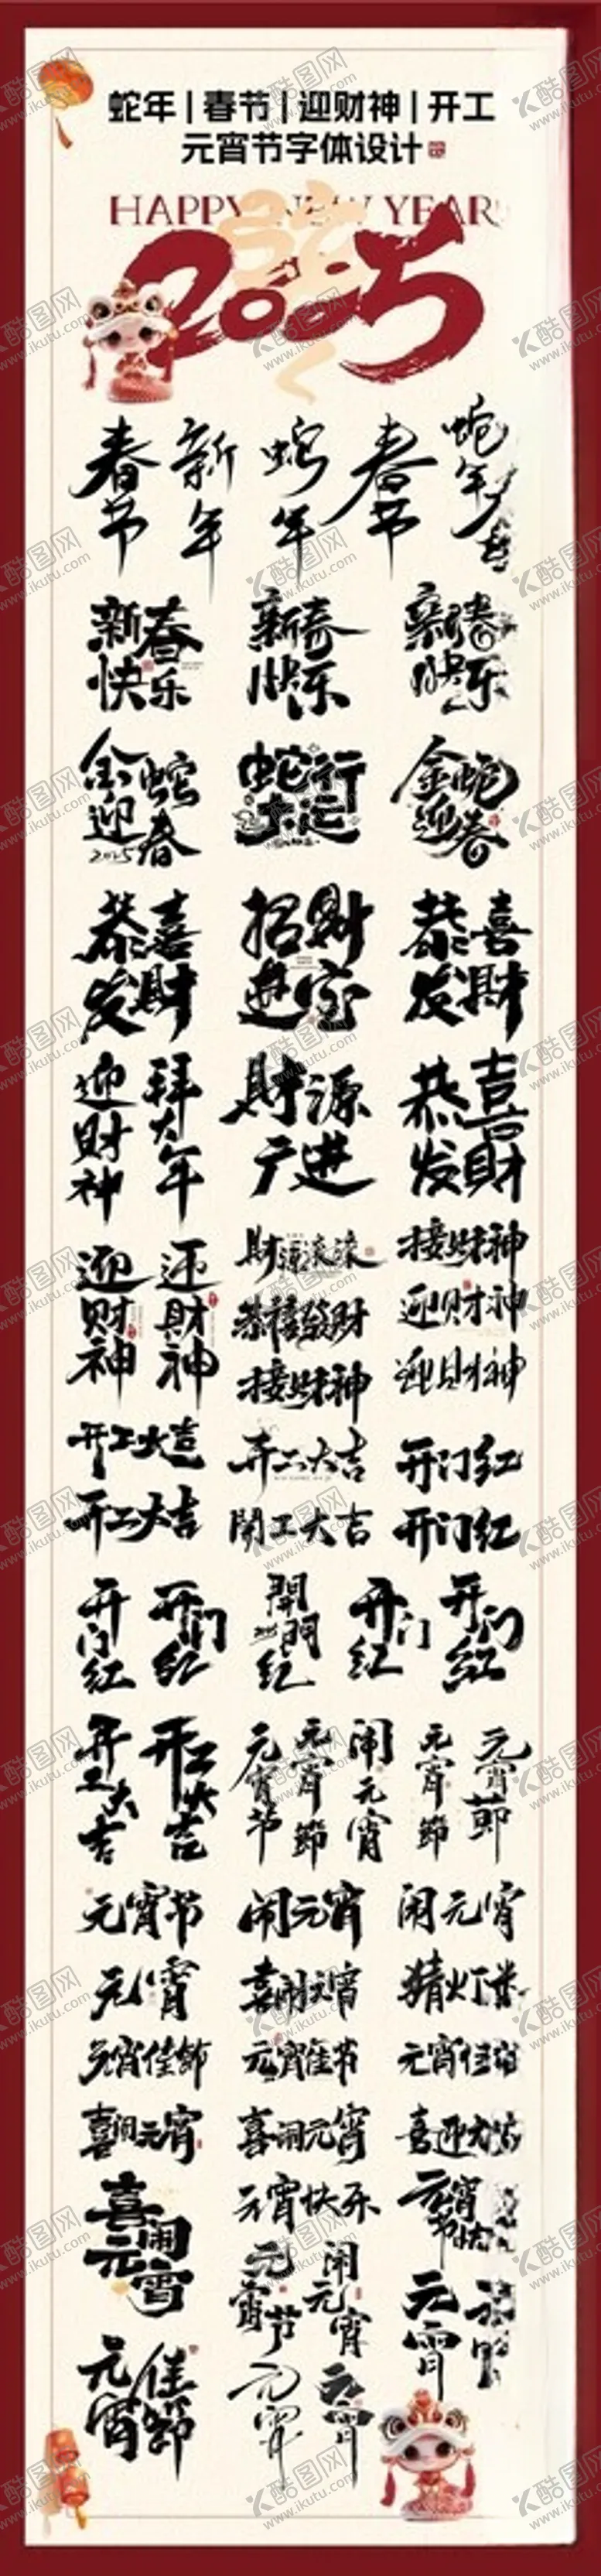 蛇年 | 春节 | 迎财神 | 开工
元宵节字体设计
HAPPY NEW YEAR
2025
春节 新年 蛇年 春节 蛇年
新春快乐 新春快乐 新春快乐
金蛇迎春 2025 蛇行大运 金蛇迎春
恭喜发財 招財进宝 恭喜发財
迎财神 拜大年 財源广进 恭喜发財
迎财神 迎財神 財源滚滚 接财神
恭禧发财 迎财神
接财神 迎财神
开工大吉 开工大吉 开门红
开工大吉 開工大吉 开门红
开门红 开门红 開門红 开门红 开门红
开工大吉 开工大吉 元宵节 元宵節 闹元宵 元宵節 元宵節
元宵节 闹元宵 闹元宵
元宵 喜闹元宵 猜灯
元宵佳節 元宵佳节 元宵佳
喜闹元宵 喜闹元宵 喜迎元
喜闹元宵 元宵快乐 元宵节快
元宵节 闹元宵 元宵
元宵佳節 元宵 元宵
酷图网
www.ikutu.com